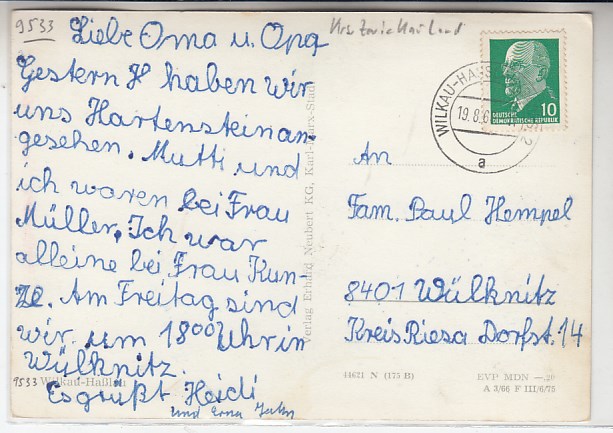 9533
Liebe Oma u. Opa
Gestern haben wir
uns Hartenstein an-
gesehen. Mutti und
ich waren bei Frau
Müller. Ich war
alleine bei Frau Kun-
ze. Am Freitag sind
wir um 18 00 Uhr in
Wülknitz.
Es grüßt Heidi
und Erna
9533 Wilkau-Haßlau
Verlag Erhard Neubert KG, Karl-Marx-Stadt
WILKAU-HASS
19.8.6
a
10
DEUTSCHE
DEMOKRATISCHE REPUBLIK
An
Fam. Paul Hempel
8401 Wülknitz
Kreis Riesa Dorfst. 14
44621 N (175 B)
EVP MDN —,20
A 3/66 F III/6/75